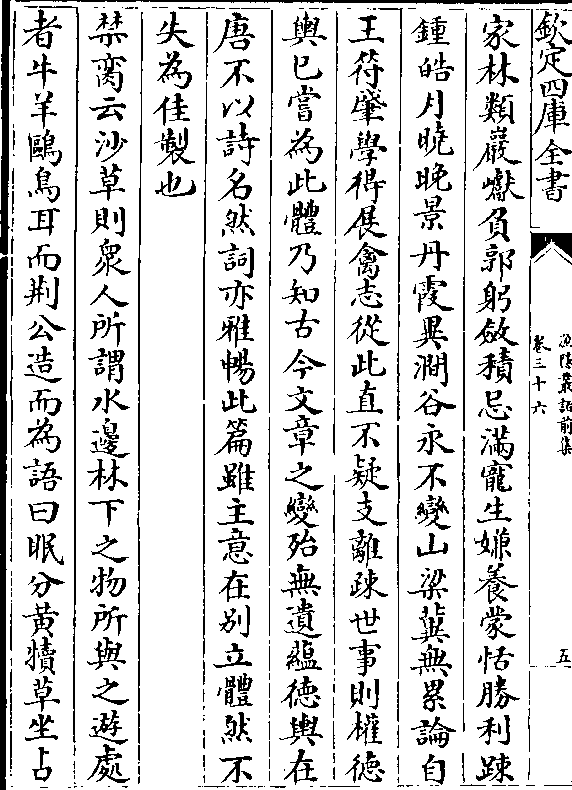 欽定四庫全書
漁隱叢話前集
卷三十六
五
家林類巖巘負郭躬斂積忌滿寵生嫌養蒙恬勝利踈
鍾皓月曉晚景丹霞異澗谷永不變山梁冀無累論自
王符肇學得展禽志從此直不疑支離疎世事則權德
輿已嘗為此體乃知古今文章之變殆無遺藴德輿在
唐不以詩名然詞亦雅暢此篇雖主意在别立體然不
失為佳製也
禁臠云沙草則衆人所謂水邊林下之物所與之遊處
者牛羊鷗鳥耳而荆公造而為語曰眠分黄犢草坐占